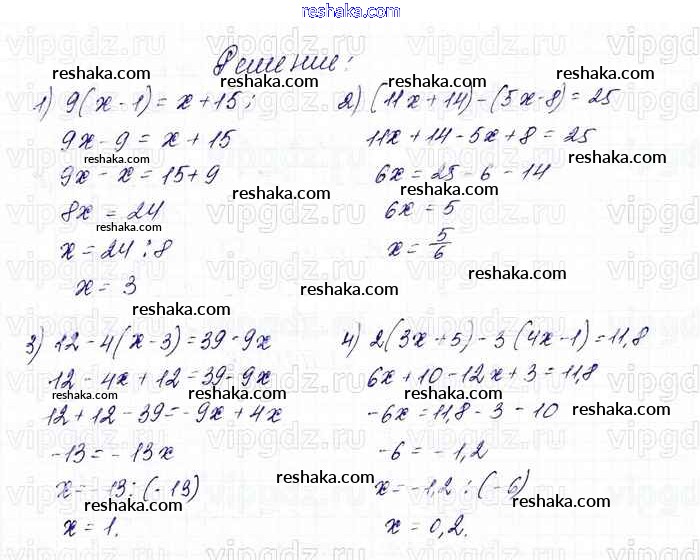 reshaka.com
Решение:
reshaka.com
reshaka.com
1) 9(x-1)=x+15;
9x-9=x+15
reshaka.com
9x-x=15+9
8x=24
reshaka.com
x=24:8
x=3
reshaka.com
2) (11x+14)-(5x-8)=25
reshaka.com
11x+14-5x+8=25
reshaka.com
6x=25-6-14
reshaka.com
6x=5
reshaka.com
x=5/6
reshaka.com
reshaka.com
3) 12-4(x-3)=39-9x
reshaka.com
12-4x+12=39-9x
reshaka.com
12+12-39=-9x+4x
reshaka.com
-13=-13x
x=-13:(-13)
reshaka.com
x=1.
reshaka.com
4) 2(3x+5)-3(4x-1)=11,8
6x+10-12x+3=11,8
reshaka.com
-6x=11,8-3-10
reshaka.com
-6=-1,2
reshaka.com
x=-1,2:(-6)
reshaka.com
x=0,2.
vipgdz.ru